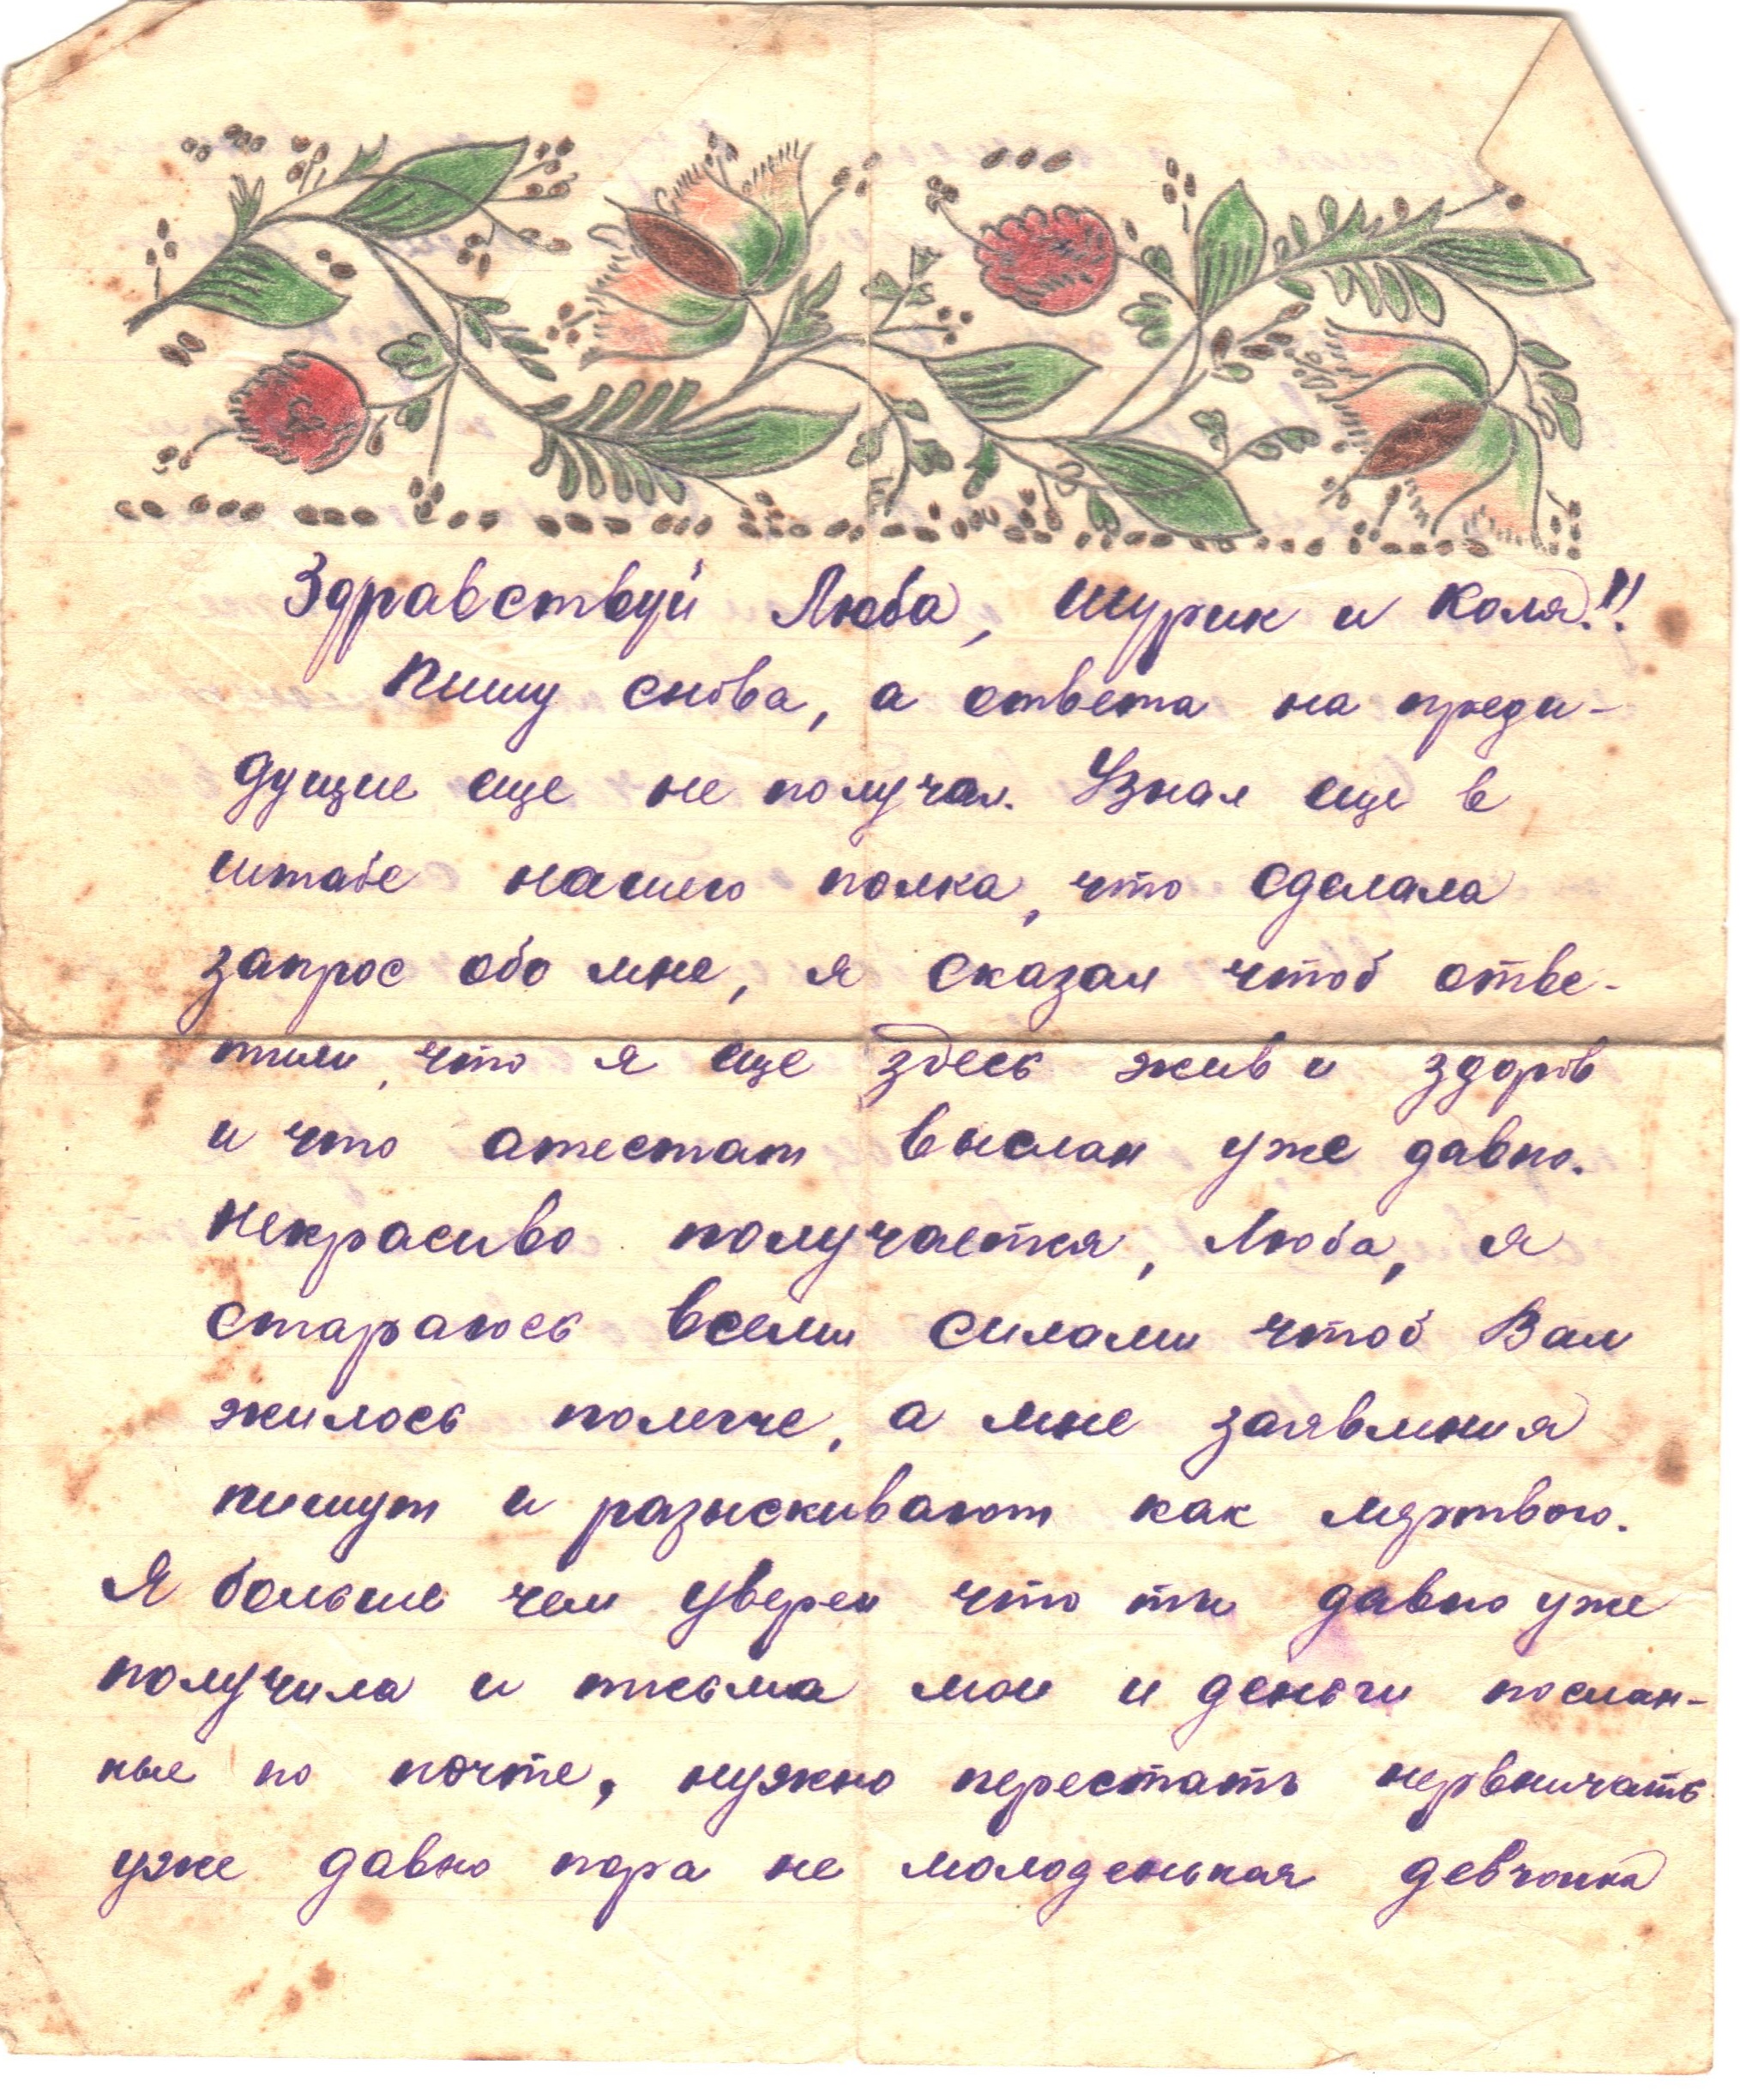 Здравствуй Люба, Шурик и Коля!!
Пишу снова, а ответа на преды-
дущие еще не получал. Узнал еще в
штабе нашего полка, что сделала
запрос обо мне, я сказал чтоб отве-
тили, что я еще здесь жив и здоров
и что атестат выслан уже давно.
Некрасиво получается, Люба, я
стараюсь всеми силами чтоб Вам
жилось полегче, а мне заявления
пишут и разыскивают как мертвого.
Я больше чем уверен что ты давно уже
получила и письма мои и деньги послан-
ные по почте, нужно перестать нервничать
уже давно пора не молоденькая девчонка